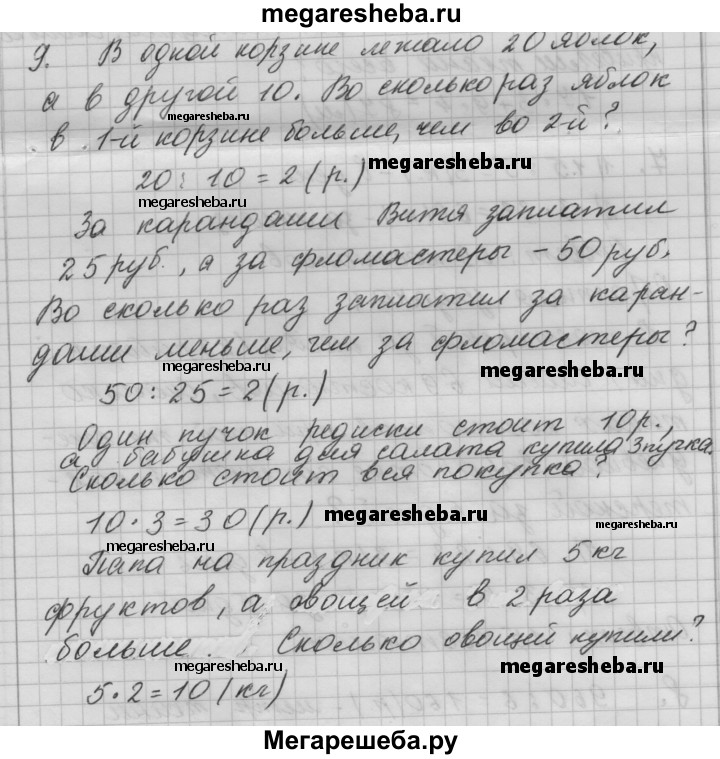 megaresheba.ru
9. В одной корзине лежало 20 яблок,
а в другой 10. Во сколько раз яблок
megaresheba.ru
megaresheba.ru
в 1-й корзине больше, чем во 2-й?
20 : 10 = 2 (р.) megaresheba.ru
За карандаши Витя заплатил
25 руб., а за фломастеры - 50 руб.
megaresheba.ru
megaresheba.ru
Во сколько раз заплатил за каран-
даши меньше, чем за фломастеры?
megaresheba.ru
50 : 25 = 2 (р.) megaresheba.ru
Один пучок редиски стоит 10 р.,
а бабушка для салата купила 3 пучка.
megaresheba.ru
Сколько стоит вся покупка?
10 · 3 = 30 (р.) megaresheba.ru
megaresheba.ru
megaresheba.ru
Папа на праздник купил 5 кг
фруктов, а овощей в 2 раза
больше. Сколько овощей купили?
megaresheba.ru
megaresheba.ru
5 · 2 = 10 (кг)
Мегарешеба.ру